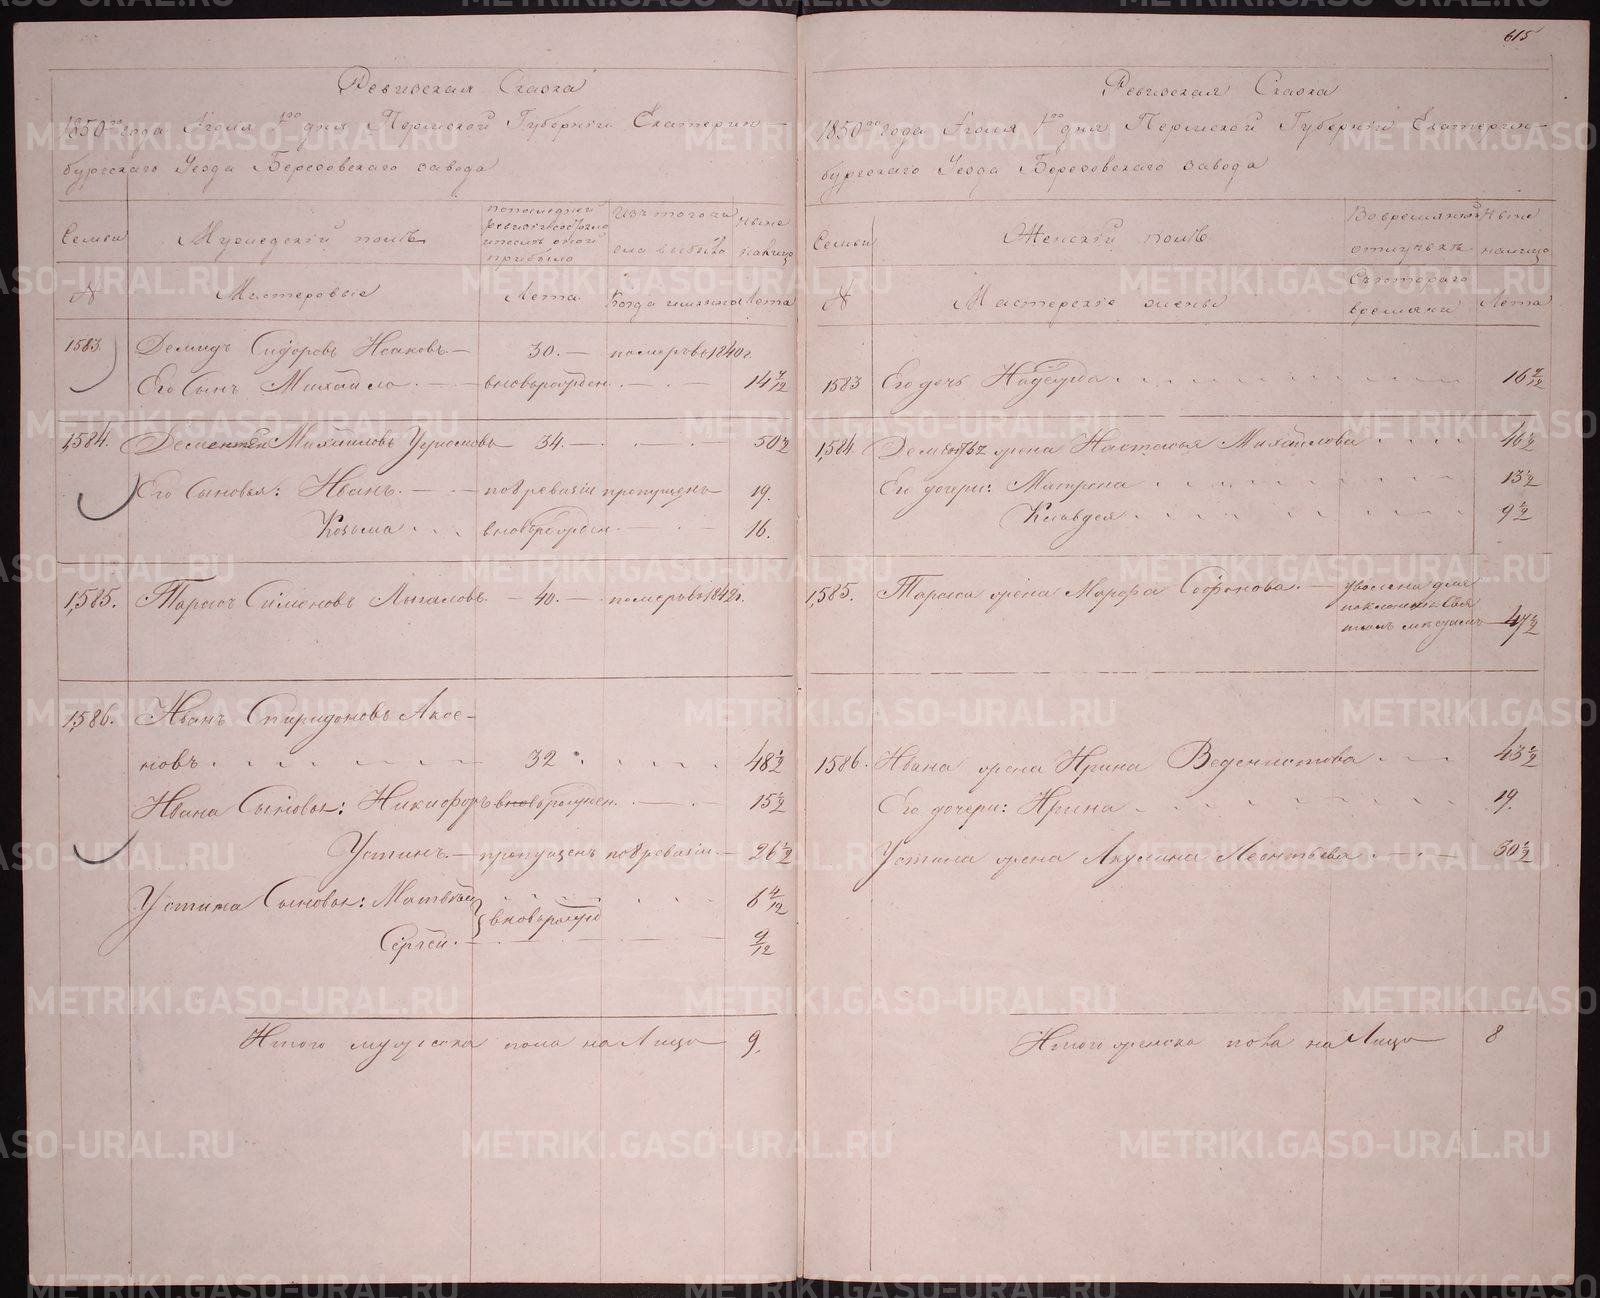 615
Ревизская Сказка
1850го года Iюля 1го дня Пермской Губернiи Екатерин-
бургскаго Уезда Березовскаго завода
Семьи
Мужедскiй полъ
по последней
ревизiи состояло
и после оной
прибыло
Изъ того чи-
сла выбыло
Ныне
налицо
N
Мастеровые
Лета
Когда имянно
Лета
1583.
Демидъ Сидоровъ Исаковъ 30. померъ в 1840 г.
Его Сынъ Михайло вновьрожден. 14 7/12
1,584.
Дементей Михаиловъ 34. 50 1/2
Его Сыновья: Иванъ. по 8 ревизiи пропущенъ 19.
Козьма вновьрожден. 16.
1,585. Тарасъ Симоновъ 40. померъ в 1842 г.
1,586. Иванъ Спиридоновъ Аксе-
новъ 32 48 1/2
Ивана Сыновья: Никифоръ вновьрожден. 15 1/2
Устинъ. пропущенъ по 8 ревизiи 26 1/2
Устина Сыновья: Матвей вновьрожд 6 4/12
Сергей. 9/12
Итого мужеска пола на Лицо 9.
Ревизская Сказка
1850го года Iюля 1го дня Пермской Губернiи Екатерин-
бургскаго Уезда Березовскаго завода
Семьи
Женскiй полъ
Во временной
отлучкъ
Ныне
налицо
N
Мастерскiе жены
Съ котораго
времяни
Лета
1583 Его дочь Надежда 16 7/12
1,584. жена Настасья Михайлова 46 1/2
Его дочери: Матрена 13 1/2
Клавдея 9 1/2
1,585. Тараса жена Марфа Софонова. уволена для
поклоненiя Свя
тымъ местамъ 47 1/2
1586. Ивана жена Ирина Веденистова 43 1/2
Его дочери: Ирина 19.
Устина жена Акулина Леонтьева 30 1/2
Итого женска пола на Лицо 8
METRIKI.GASO-URAL.RU